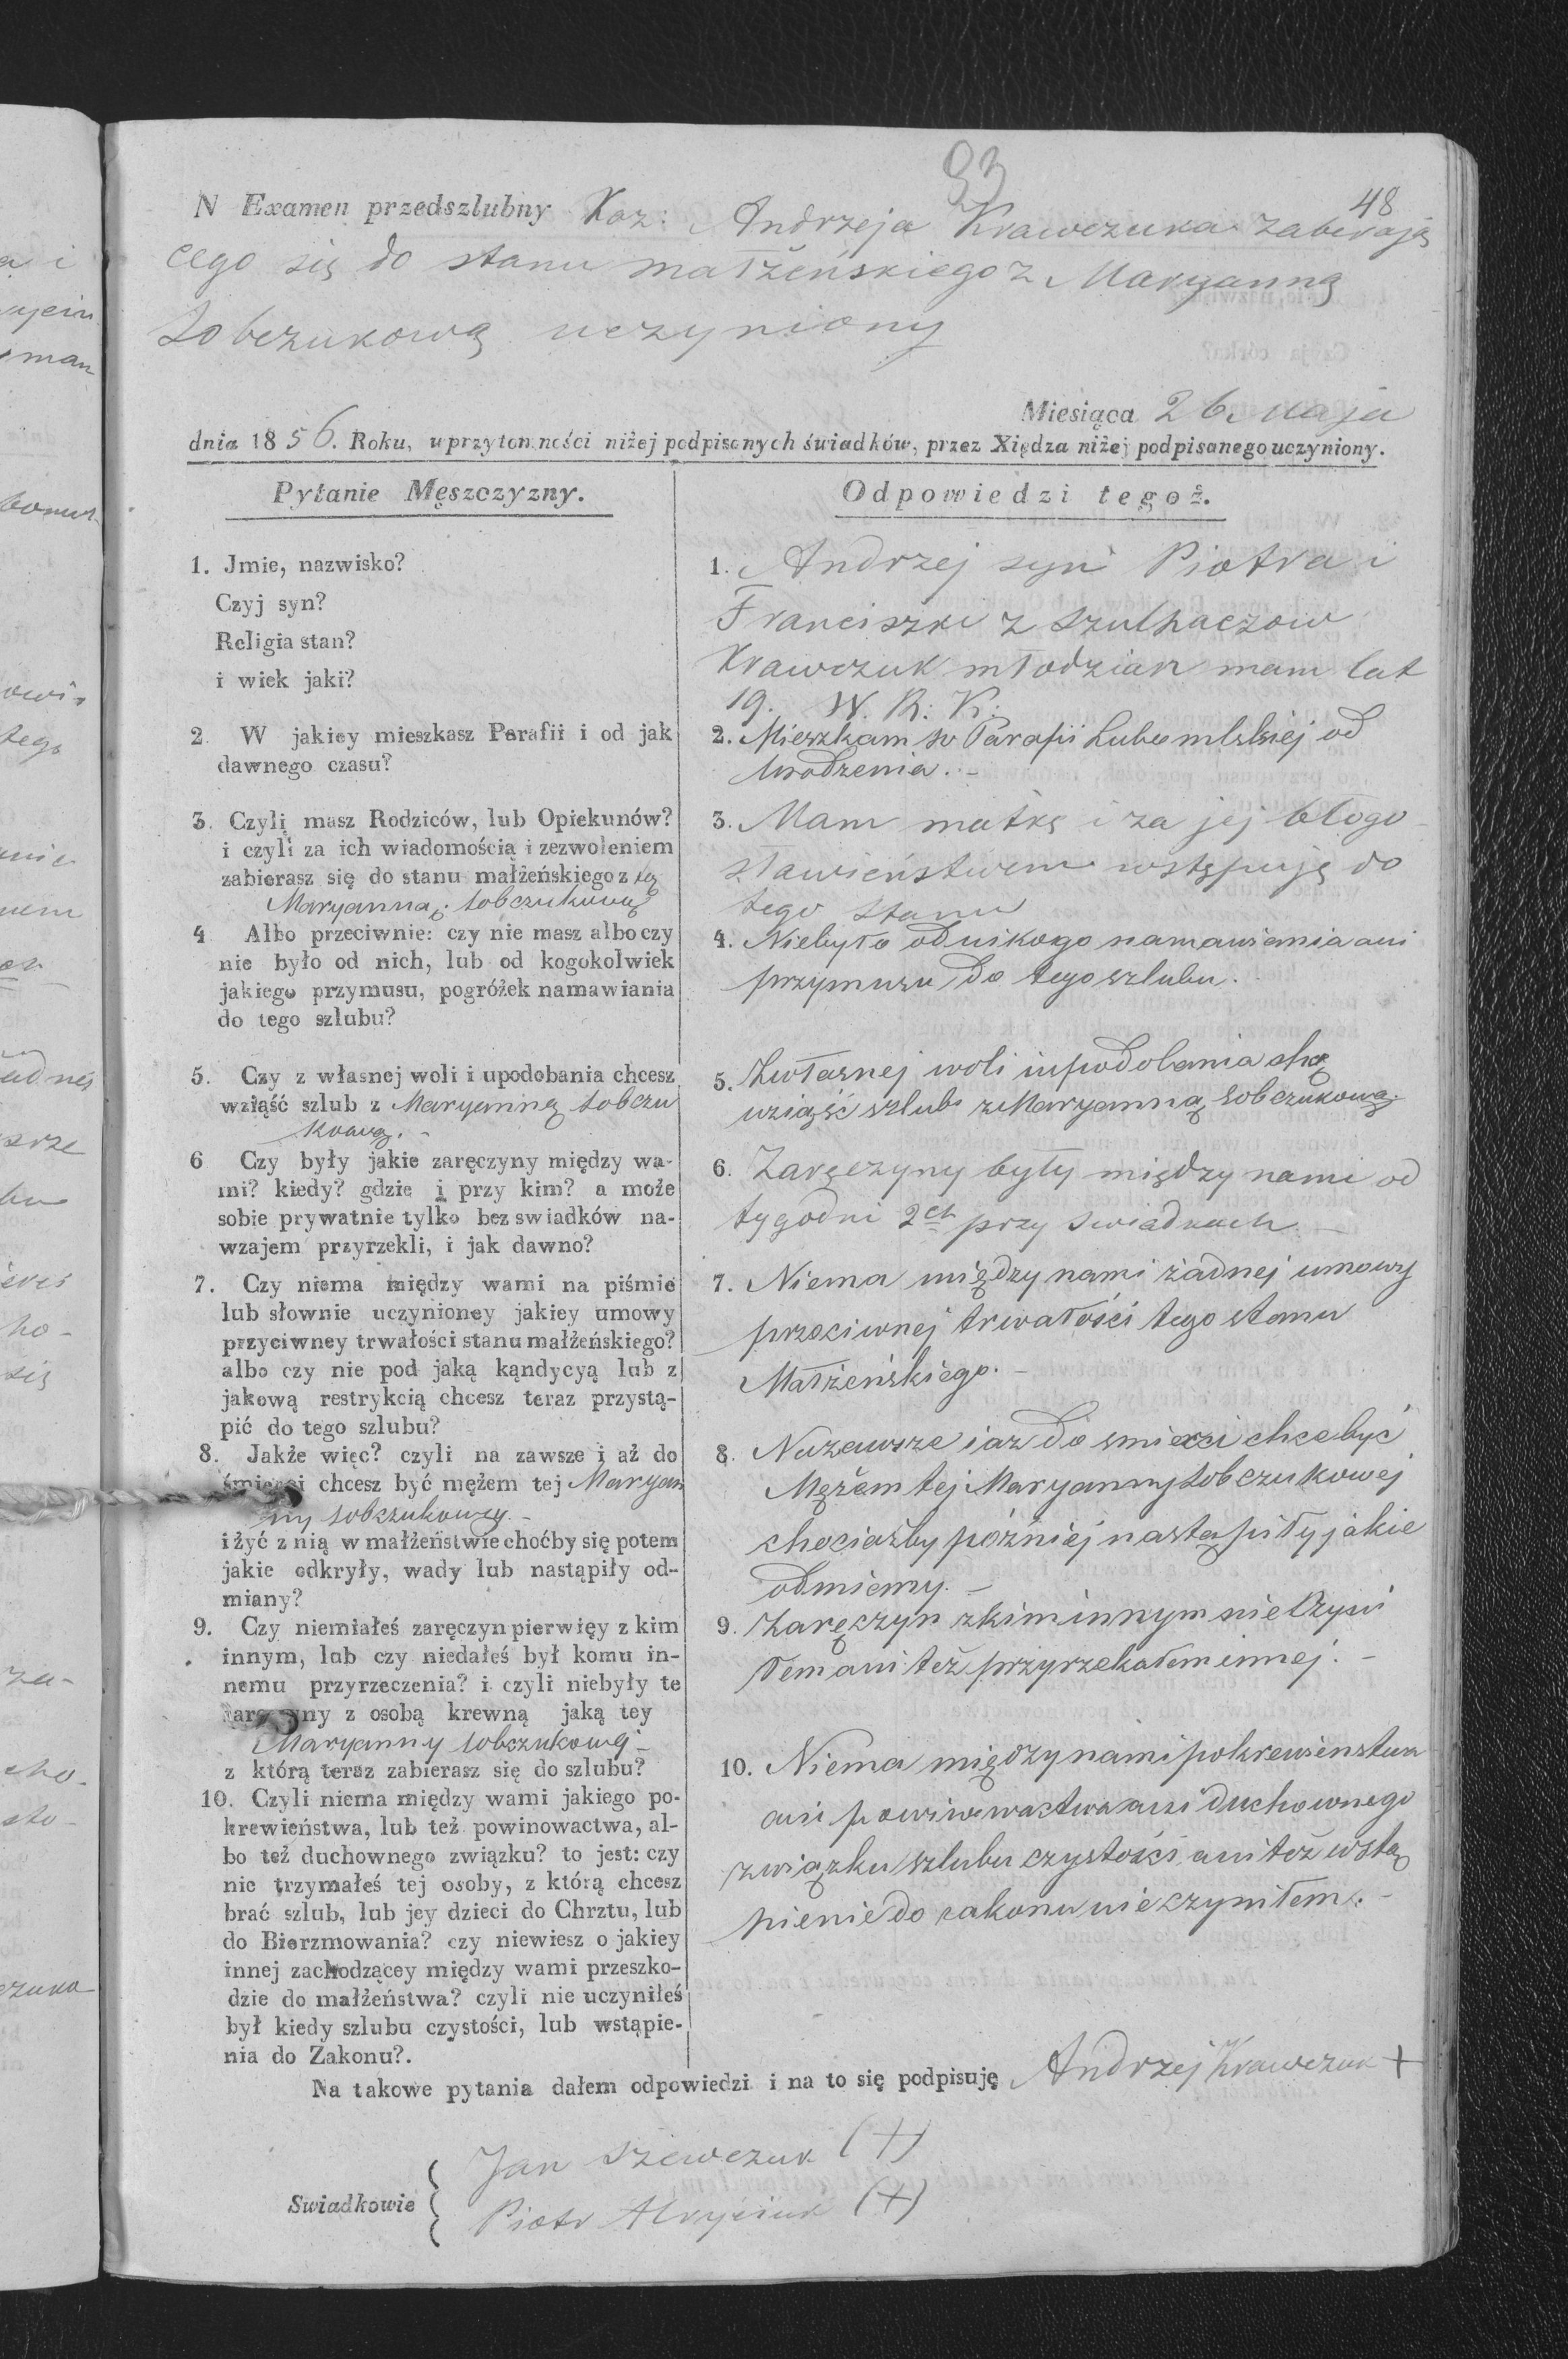 93
48
N Examen przedszlubny Kaz: Andrzeja Krawczuka zabierają
cego się do stanu małżeńskiego z Maryanną
Sobczukową uczyniony
Miesiąca 26. Maja
dnia 1856. Roku, w przytomności niżej podpisanych świadków, przez Xiędza niżej podpisanego uczyniony.
Pytanie Męszczyzny.
1. Jmie, nazwisko?
Czyj syn?
Religia stan?
i wiek jaki?
2. W jakiey mieszkasz Parafii i od jak
dawnego czasu?
3. Czyli masz Rodziców, lub Opiekunów?
i czyli za ich wiadomością i zezwoleniem
zabierasz się do stanu małżeńskiego z tą
Maryanną Sobczukową
4. Albo przeciwnie: czy nie masz albo czy
nie było od nich, lub od kogokolwiek
jakiego przymusu, pogróżek namawiania
do tego szlubu?
5. Czy z własnej woli i upodobania chcesz
wziąść szlub z Maryanną Sobczu
kową.-
6 Czy były jakie zaręczyny między wa-
mi? kiedy? gdzie i przy kim? a może
sobie prywatnie tylko bez swiadków na-
wzajem przyrzekli, i jak dawno?
7. Czy niema między wami na piśmie
lub słownie uczynioney jakiey umowy
przyciwney trwałości stanu małżeńskiego?
albo czy nie pod jaką kąndycyą lub z
jakową restrykcią chcesz teraz przystą-
pić do tego szlubu?
8. Jakże więc? czyli na zawsze i aż do
śmierci chcesz być mężem tej Maryan
ny Sobczukowey.-
i żyć z nią w małżeństwie choćby się potem
jakie odkryły, wady lub nastąpiły od-
miany?
9. Czy niemiałeś zaręczyn pierwięy z kim
innym, lub czy niedałeś był komu in-
nemu przyrzeczenia? i czyli niebyły te
zaręczyny z osobą krewną jaką tey
Maryanny Sobczukowej-
z którą teraz zabierasz się do szlubu?
10. Czyli niema między wami jakiego po-
krewieństwa, lub też powinowactwa, al-
bo też duchownego związku? to jest: czy
nie trzymałeś tej osoby, z którą chcesz
brać szlub, lub jey dzieci do Chrztu, lub
do Bierzmowania? czy niewiesz o jakiey
innej zachodzącey między wami przeszko-
dzie do małżeństwa? czyli nie uczyniłeś
był kiedy szlubu czystości, lub wstąpie-
nia do Zakonu?.
Odpowiedzi tegoż.
1. Andrzej syn Piotra i
Franciszki z Szulhaczow
Krawczuk młodzian mam lat
19. W. R: K:
2. Mieszkam w Parafii Lubomlskiej od
Urodzenia.-
3. Mam matkę i za jej błogo
sławieństwem wstępuję do
tego stanu
4. Niebyło od nikogo namawiania ani
przymusu do tego szlubu.
5. Zwłasnej woli i upodobania chcę
wziąść szlub z Maryanną Sobczukową.
6. Zaręczyny były między nami od
tygodni 2ch przy swiadkach.-
7. Niema między nami żadnej umowy
przeciwnej trwałości tego stanu
Małżeńskiego.-
8. Nazawsze i aż do smierci chcę być
Mężem tej Maryanny Sobczukowej
chociażby później nastąpiły jakie
odmiemy.-
9. Zaręczyn z kim innym nie Czyni
łem ani też przyrzekałem innej.-
10. Niema między nami pokrewienstwa
ani powinowactwa ani duchownego
związku szlubu czystości ani też wstą
pienie do zakonu nie czyniłem.-
Na takowe pytania dałem odpowiedzi i na to się podpisuję Andrzej Krawczuk +
Swiadkowie
Jan Szewczuk (+)
Piotr (+)